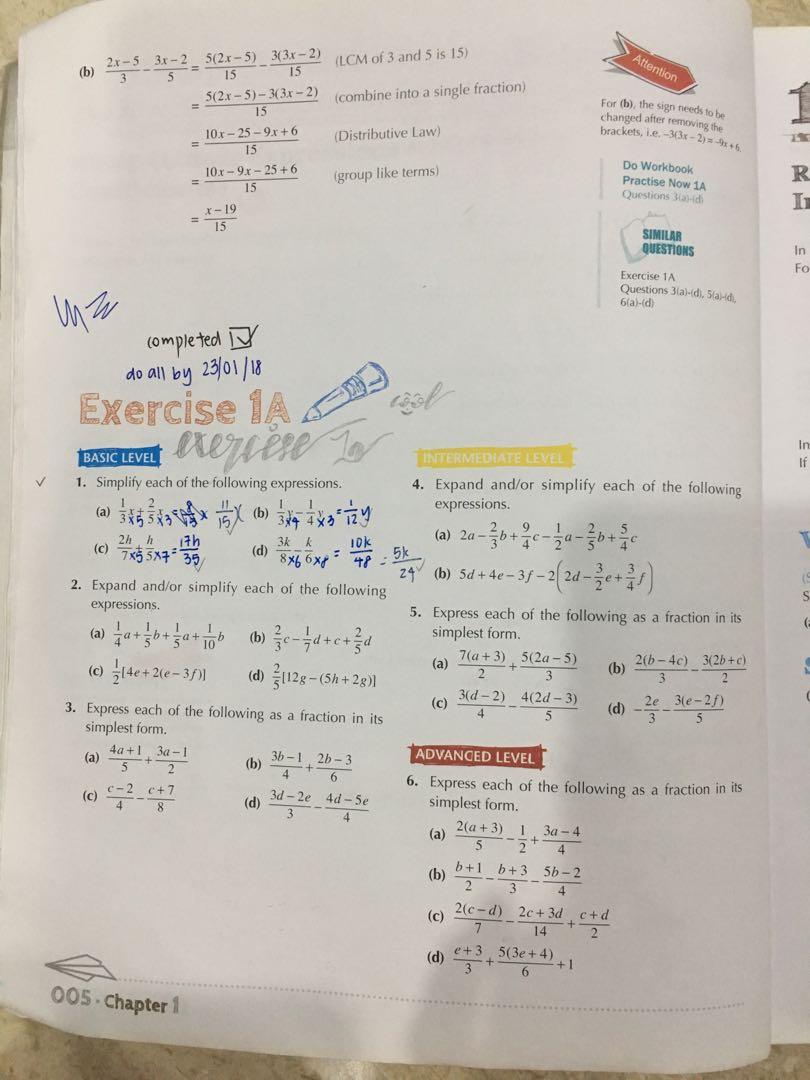 (b) (2x−5)/3 − (3x−2)/5 = 5(2x−5)/15 − 3(3x−2)/15 (LCM of 3 and 5 is 15)
= (5(2x−5)−3(3x−2))/15 (combine into a single fraction)
= (10x−25−9x+6)/15 (Distributive Law)
= (10x−9x−25+6)/15 (group like terms)
= (x−19)/15
Attention
For (b), the sign needs to be
changed after removing the
brackets, i.e. −3(3x−2) = −9x+6.
Do Workbook
Practise Now 1A
Questions 3(a)-(d)
SIMILAR
QUESTIONS
Exercise 1A
Questions 3(a)-(d), 5(a)-(d),
6(a)-(d)
completed
do all by 23/01/18
Exercise 1A
cool
exercise 1a
BASIC LEVEL
1. Simplify each of the following expressions.
(a) 1/3 x ×5 + 2/5 x ×3 = x 11/15 x (b) 1/3 y ×4 − 1/4 y ×3 = 1/12 y
(c) 2h/7 ×5 + h/5 ×7 = 17h/35 (d) 3k/8 ×6 − k/6 ×8 = 10k/48 = 5k/24
2. Expand and/or simplify each of the following
expressions.
(a) 1/4 a + 1/5 b + 1/5 a + 1/10 b (b) 2/3 c − 1/7 d + c + 2/5 d
(c) 1/2 [4e + 2(e − 3f)] (d) 2/5 [12g − (5h + 2g)]
3. Express each of the following as a fraction in its
simplest form.
(a) (4a+1)/5 + (3a−1)/2 (b) (3b−1)/4 + (2b−3)/6
(c) (c−2)/4 − (c+7)/8 (d) (3d−2e)/3 − (4d−5e)/4
INTERMEDIATE LEVEL
4. Expand and/or simplify each of the following
expressions.
(a) 2a − 2/3 b + 9/4 c − 1/2 a − 2/5 b + 5/4 c
(b) 5d + 4e − 3f − 2(2d − 3/2 e + 3/4 f)
5. Express each of the following as a fraction in its
simplest form.
(a) 7(a+3)/2 + 5(2a−5)/3 (b) 2(b−4c)/3 − 3(2b+c)/2
(c) 3(d−2)/4 − 4(2d−3)/5 (d) −2e/3 − 3(e−2f)/5
ADVANCED LEVEL
6. Express each of the following as a fraction in its
simplest form.
(a) 2(a+3)/5 − 1/2 + (3a−4)/4
(b) (b+1)/2 − (b+3)/3 − (5b−2)/4
(c) 2(c−d)/7 − (2c+3d)/14 + (c+d)/2
(d) (e+3)/3 + 5(3e+4)/6 + 1
005 · Chapter 1
In
Fo
In
If